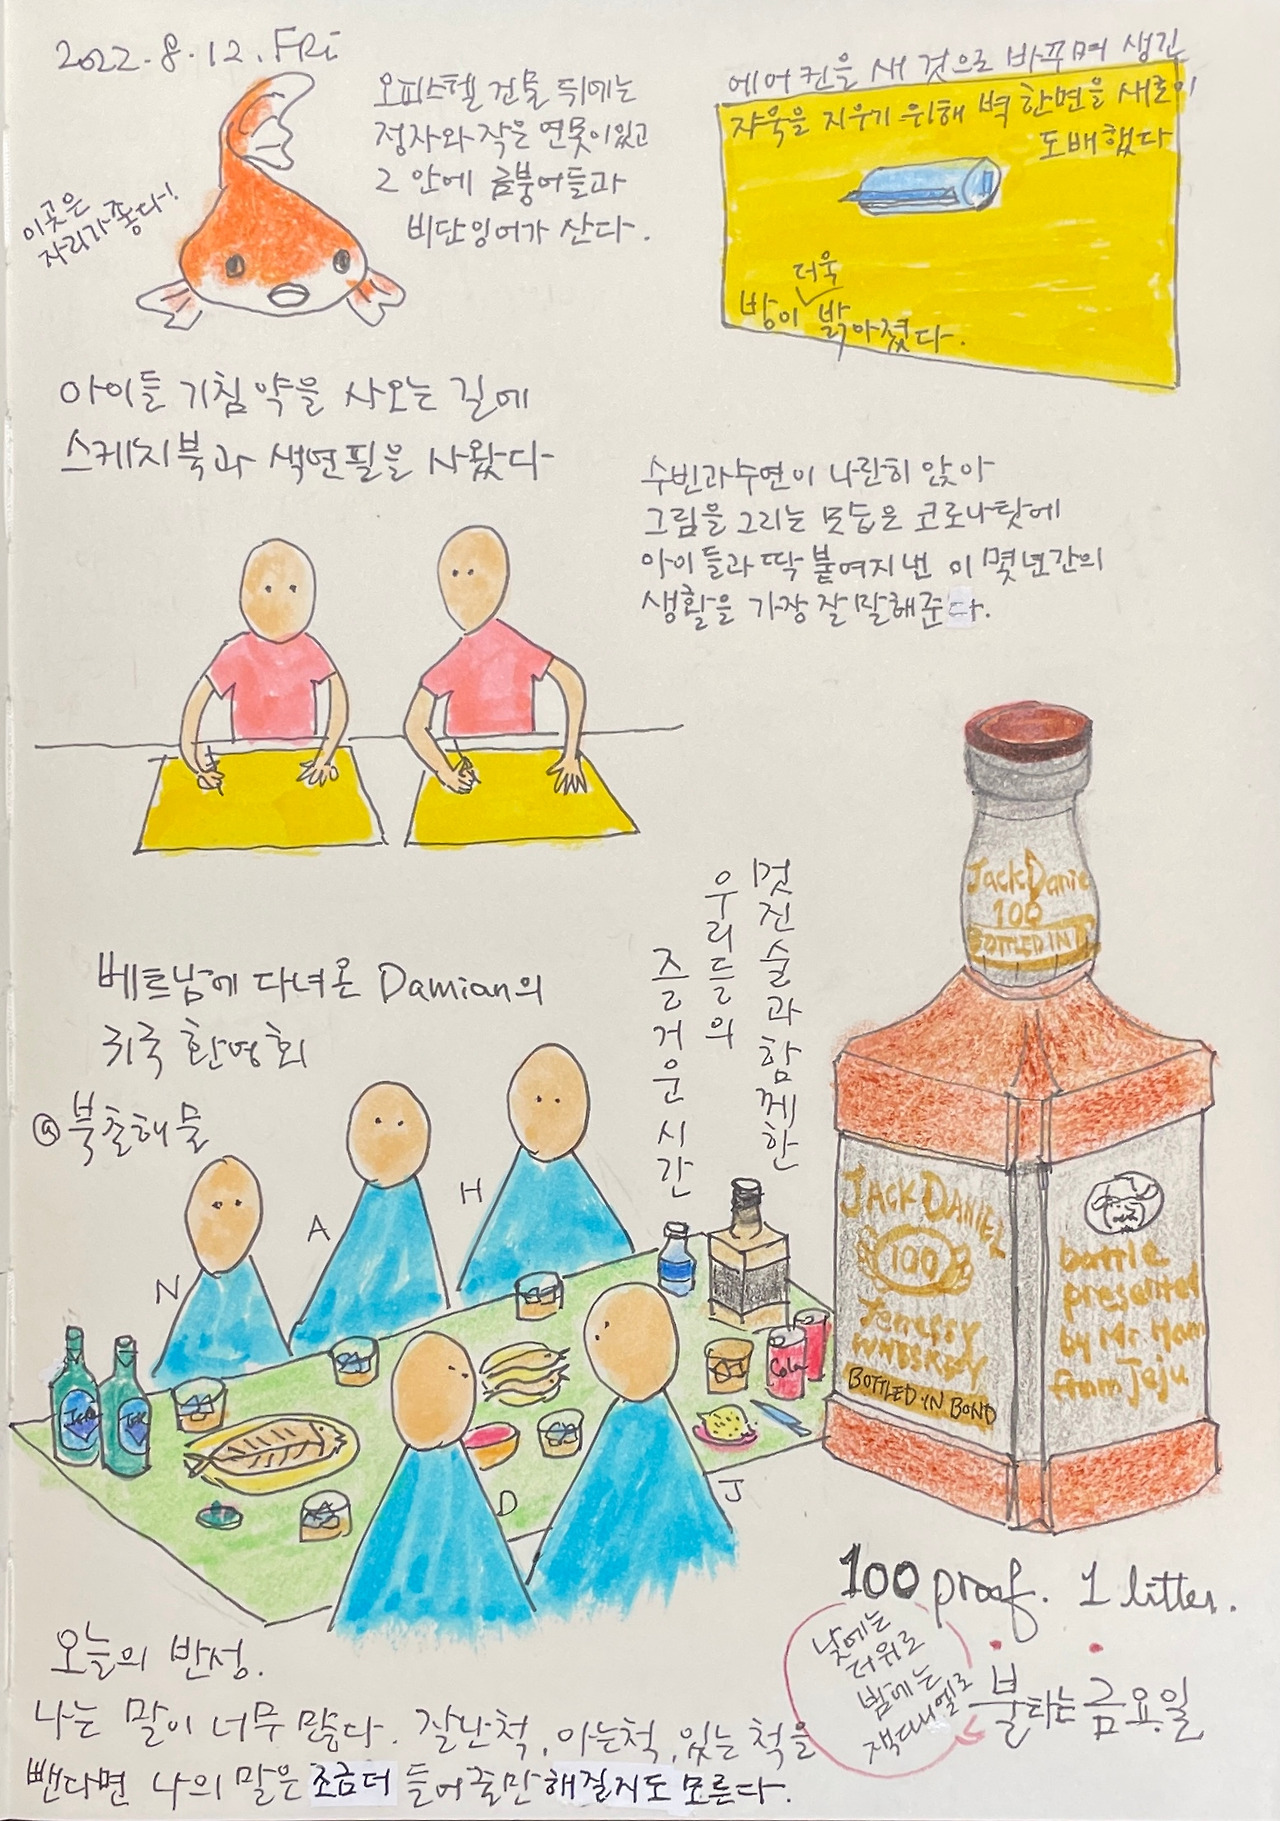 2022.8.12.FRi
오피스텔 건물 뒤에는
정자와 작은 연못이있고
그 안에 금붕어들과
비단잉어가 산다.
이곳은
자리가 좋다!
에어컨을 새 것으로 바꾸며 생긴
자욱을 지우기 위해 벽 한면을 새로이
도배했다
더욱
방이 밝아졌다.
아이들 기침약을 사오는 길에
스케치북과 색연필을 사왔다
수빈과수연이 나란히 앉아
그림을 그리는 모습은 코로나탓에
아이들과 딱 붙여지낸 이 몇년간의
생활을 가장 잘 말해준다.
멋진 술과 함께한
우리들의
즐거운 시간
베트남에 다녀온 Damian의
귀국 환영회
@북촌해물
N
A
H
D
J
Cola
Jack Danie
100
BOTTLED IN
JACK DANIEL
100
WHESKEY
BOTTLED IN BOND
bottle
presented
by Mr. Ham
from Jeju
100 proof. 1 litter.
낮에는
더위로
밤에는
잭다니엘로
불타는 금요일
오늘의 반성.
나는 말이 너무 많다. 잘난척, 아는척, 있는 척을
뺀다면 나의 말은 조금더 들어줄만 해질지도 모른다.